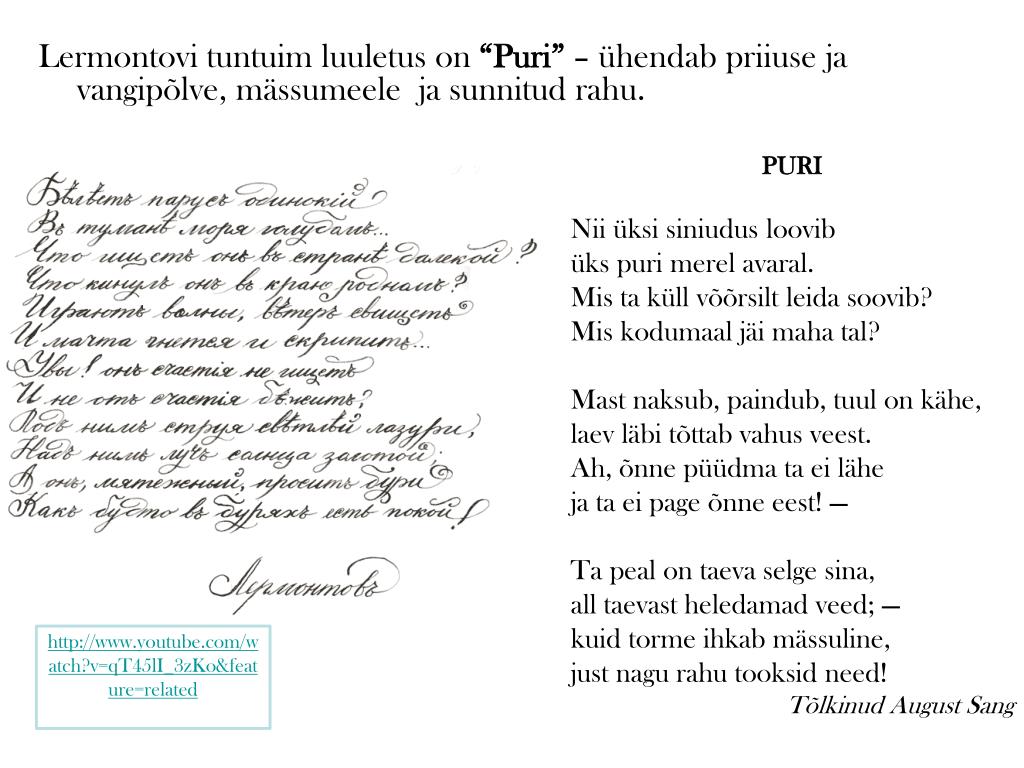 Lermontovi tuntuim luuletus on “Puri” – ühendab priiuse ja
vangipõlve, mässumeele ja sunnitud rahu.
Бѣлѣетъ парусъ одинокій
Въ туманѣ моря голубомъ...
Что ищетъ онъ въ странѣ далекой?
Что кинулъ онъ въ краю родномъ?
Играютъ волны, вѣтеръ свищетъ
И мачта гнется и скрипитъ...
Увы! онъ счастія не ищетъ
И не отъ счастія бѣжитъ?
Подъ нимъ струя свѣтлѣй лазури,
Надъ нимъ лучъ солнца золотой;
А онъ, мятежный, проситъ бури
Какъ будто въ буряхъ есть покой!
Лермонтовъ
http://www.youtube.com/w
atch?v=qT45lI_3zKo&feat
ure=related
PURI
Nii üksi siniudus loovib
üks puri merel avaral.
Mis ta küll võõrsilt leida soovib?
Mis kodumaal jäi maha tal?
Mast naksub, paindub, tuul on kähe,
laev läbi tõttab vahus veest.
Ah, õnne püüdma ta ei lähe
ja ta ei page õnne eest! —
Ta peal on taeva selge sina,
all taevast heledamad veed; —
kuid torme ihkab mässuline,
just nagu rahu tooksid need!
Tõlkinud August Sang